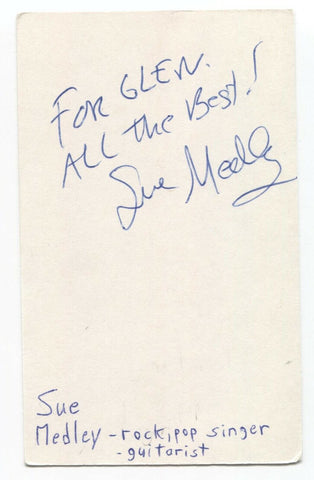 FOR GLEN.
ALL the Best!
Sue Medley
Sue
Medley - rock, pop singer
- guitarist